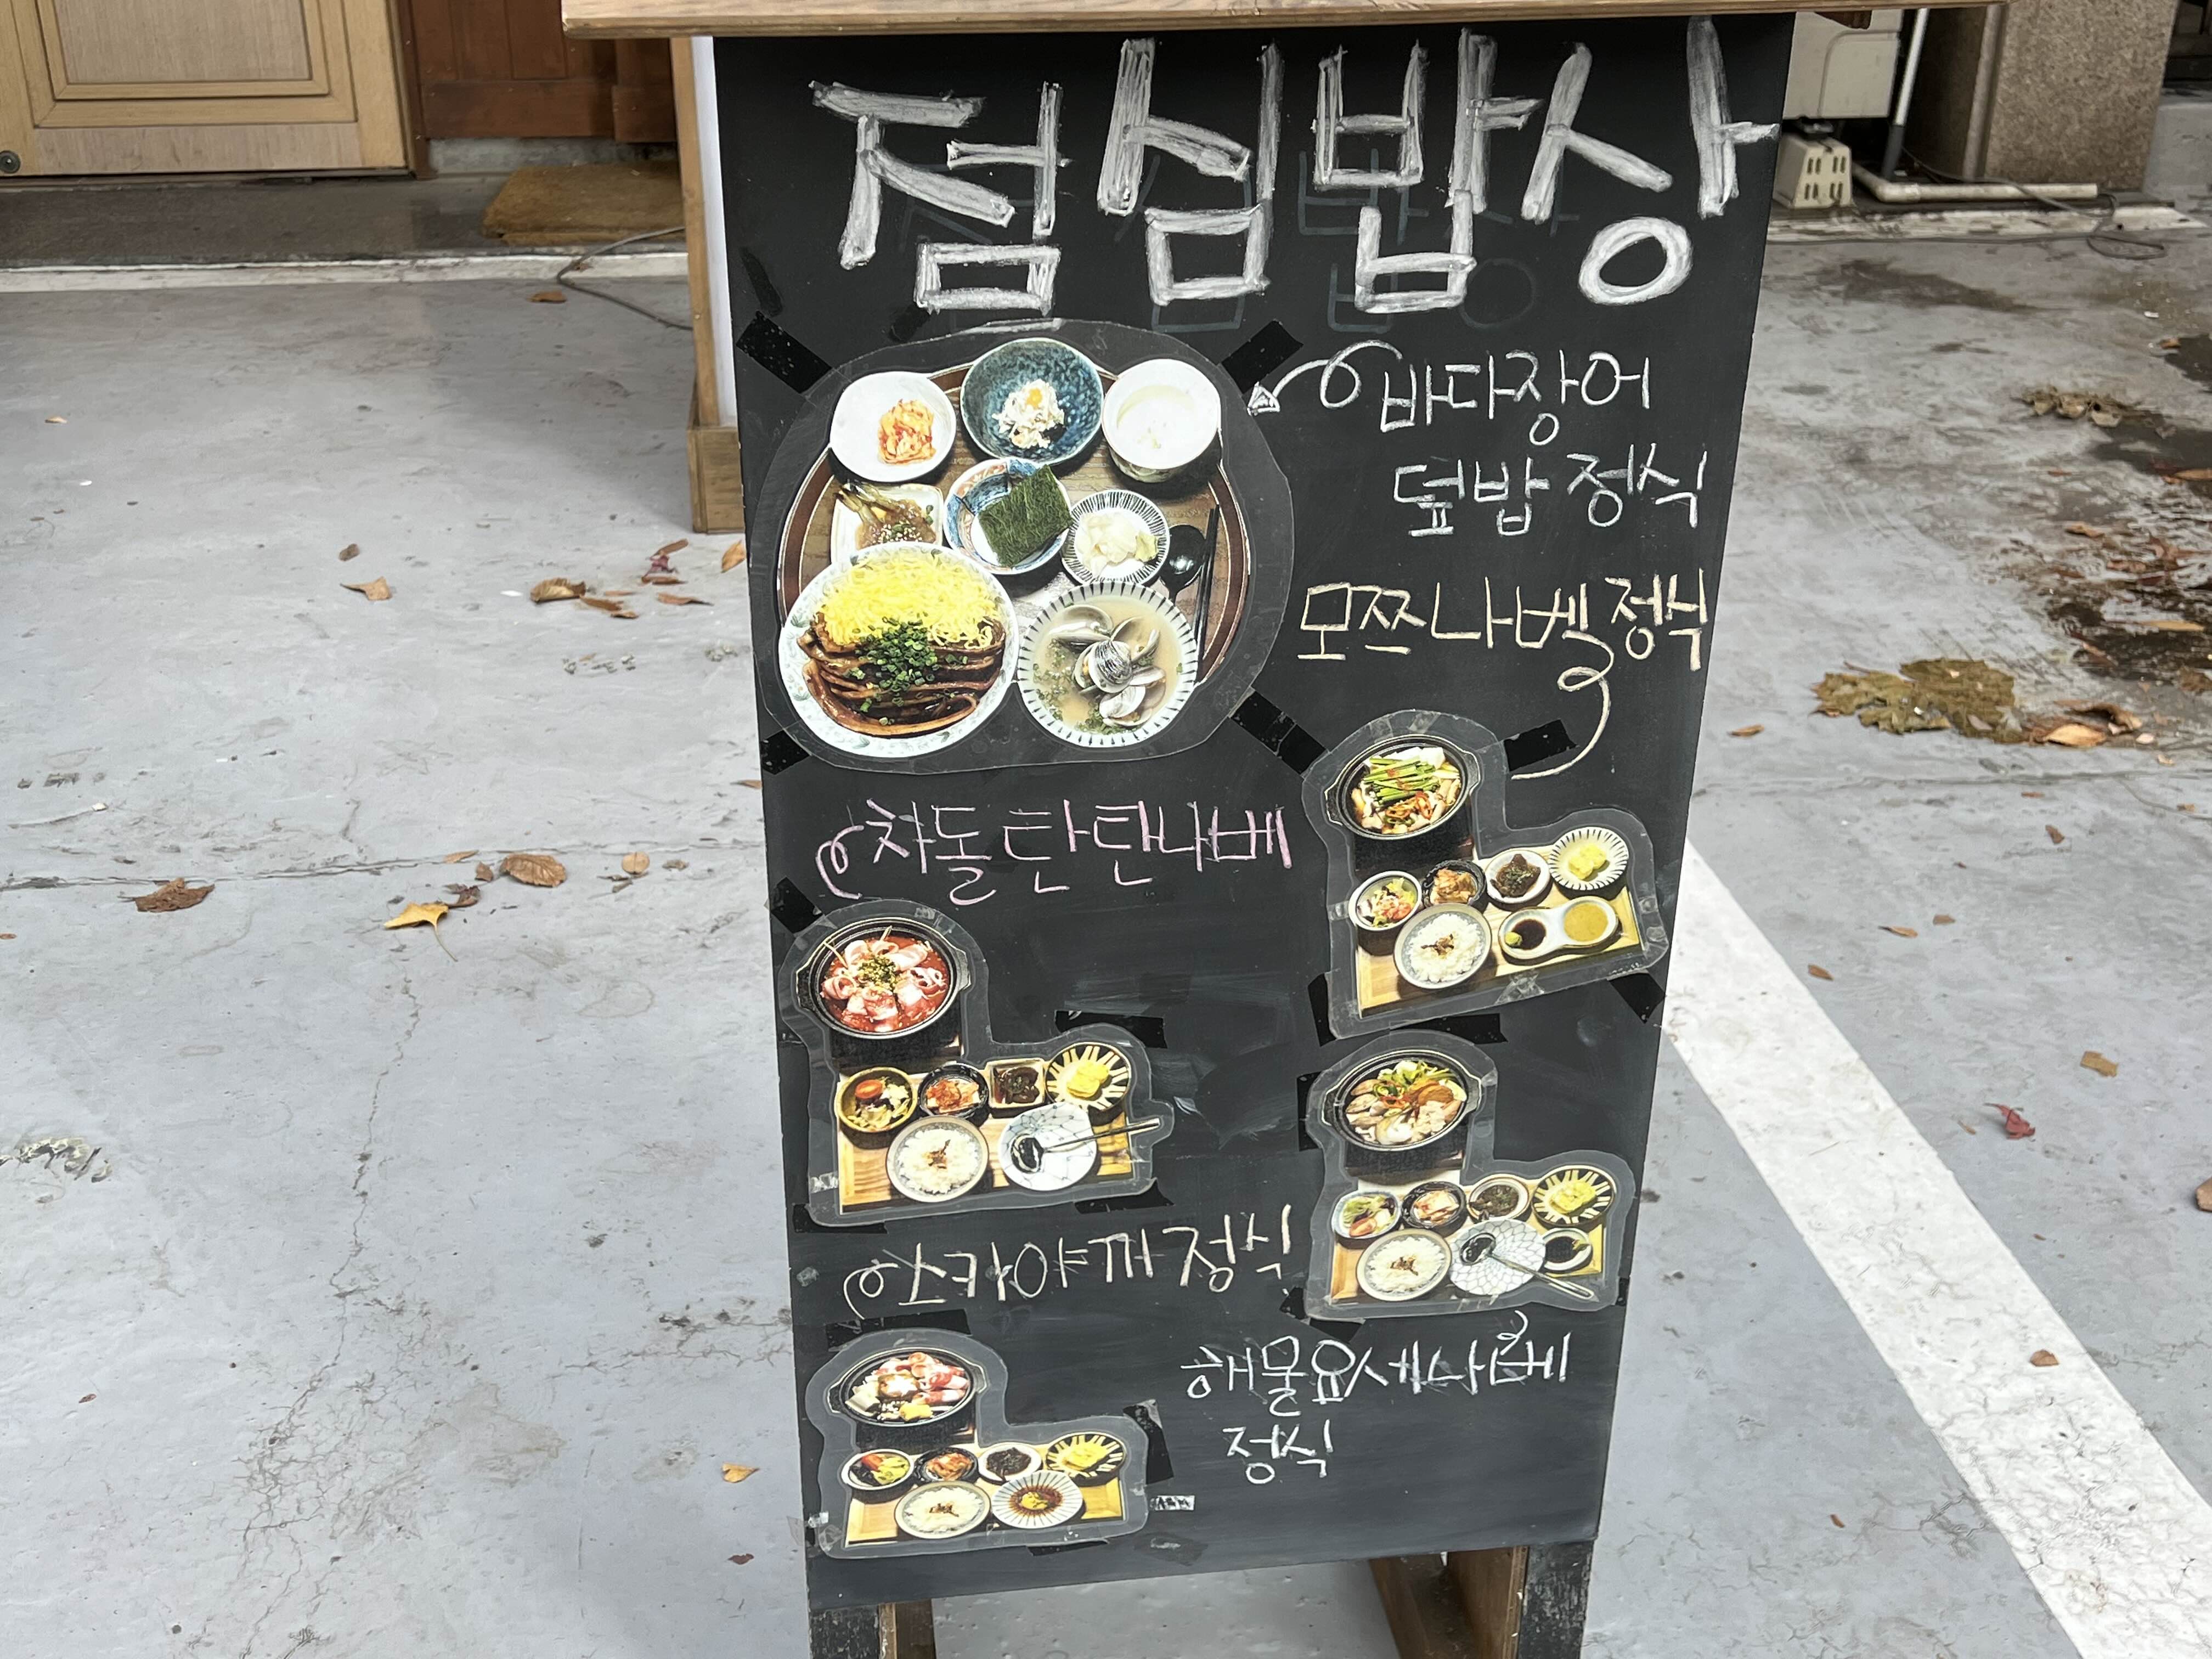 점심밥상
바다장어
덮밥 정식
모쯔나베 정식
차돌탄탄나베
스카야끼 정식
해물요세나베
정식